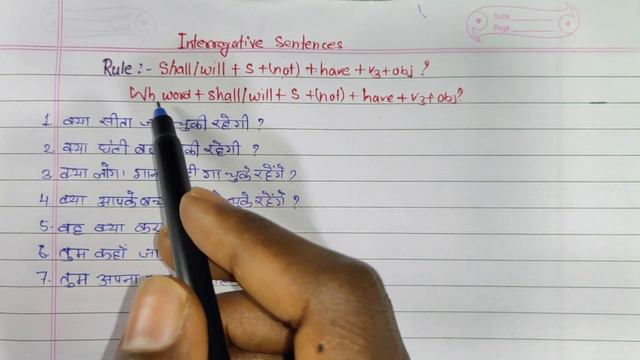 Date
Page
Interrogative Sentences
Rule :- Shall/will + S + (not) + have + v3 + obj ?
Wh word + shall/will + S + (not) + have + v3 + obj ?
1. क्या सीता चुकी रहेगी ?
2. क्या घंटी रहेगी ?
3. क्या लोग गा चुके रहेंगे ?
4. क्या आपके चुके रहेंगे ?
5. वह क्या
6. तुम कहाँ
7. तुम अपना